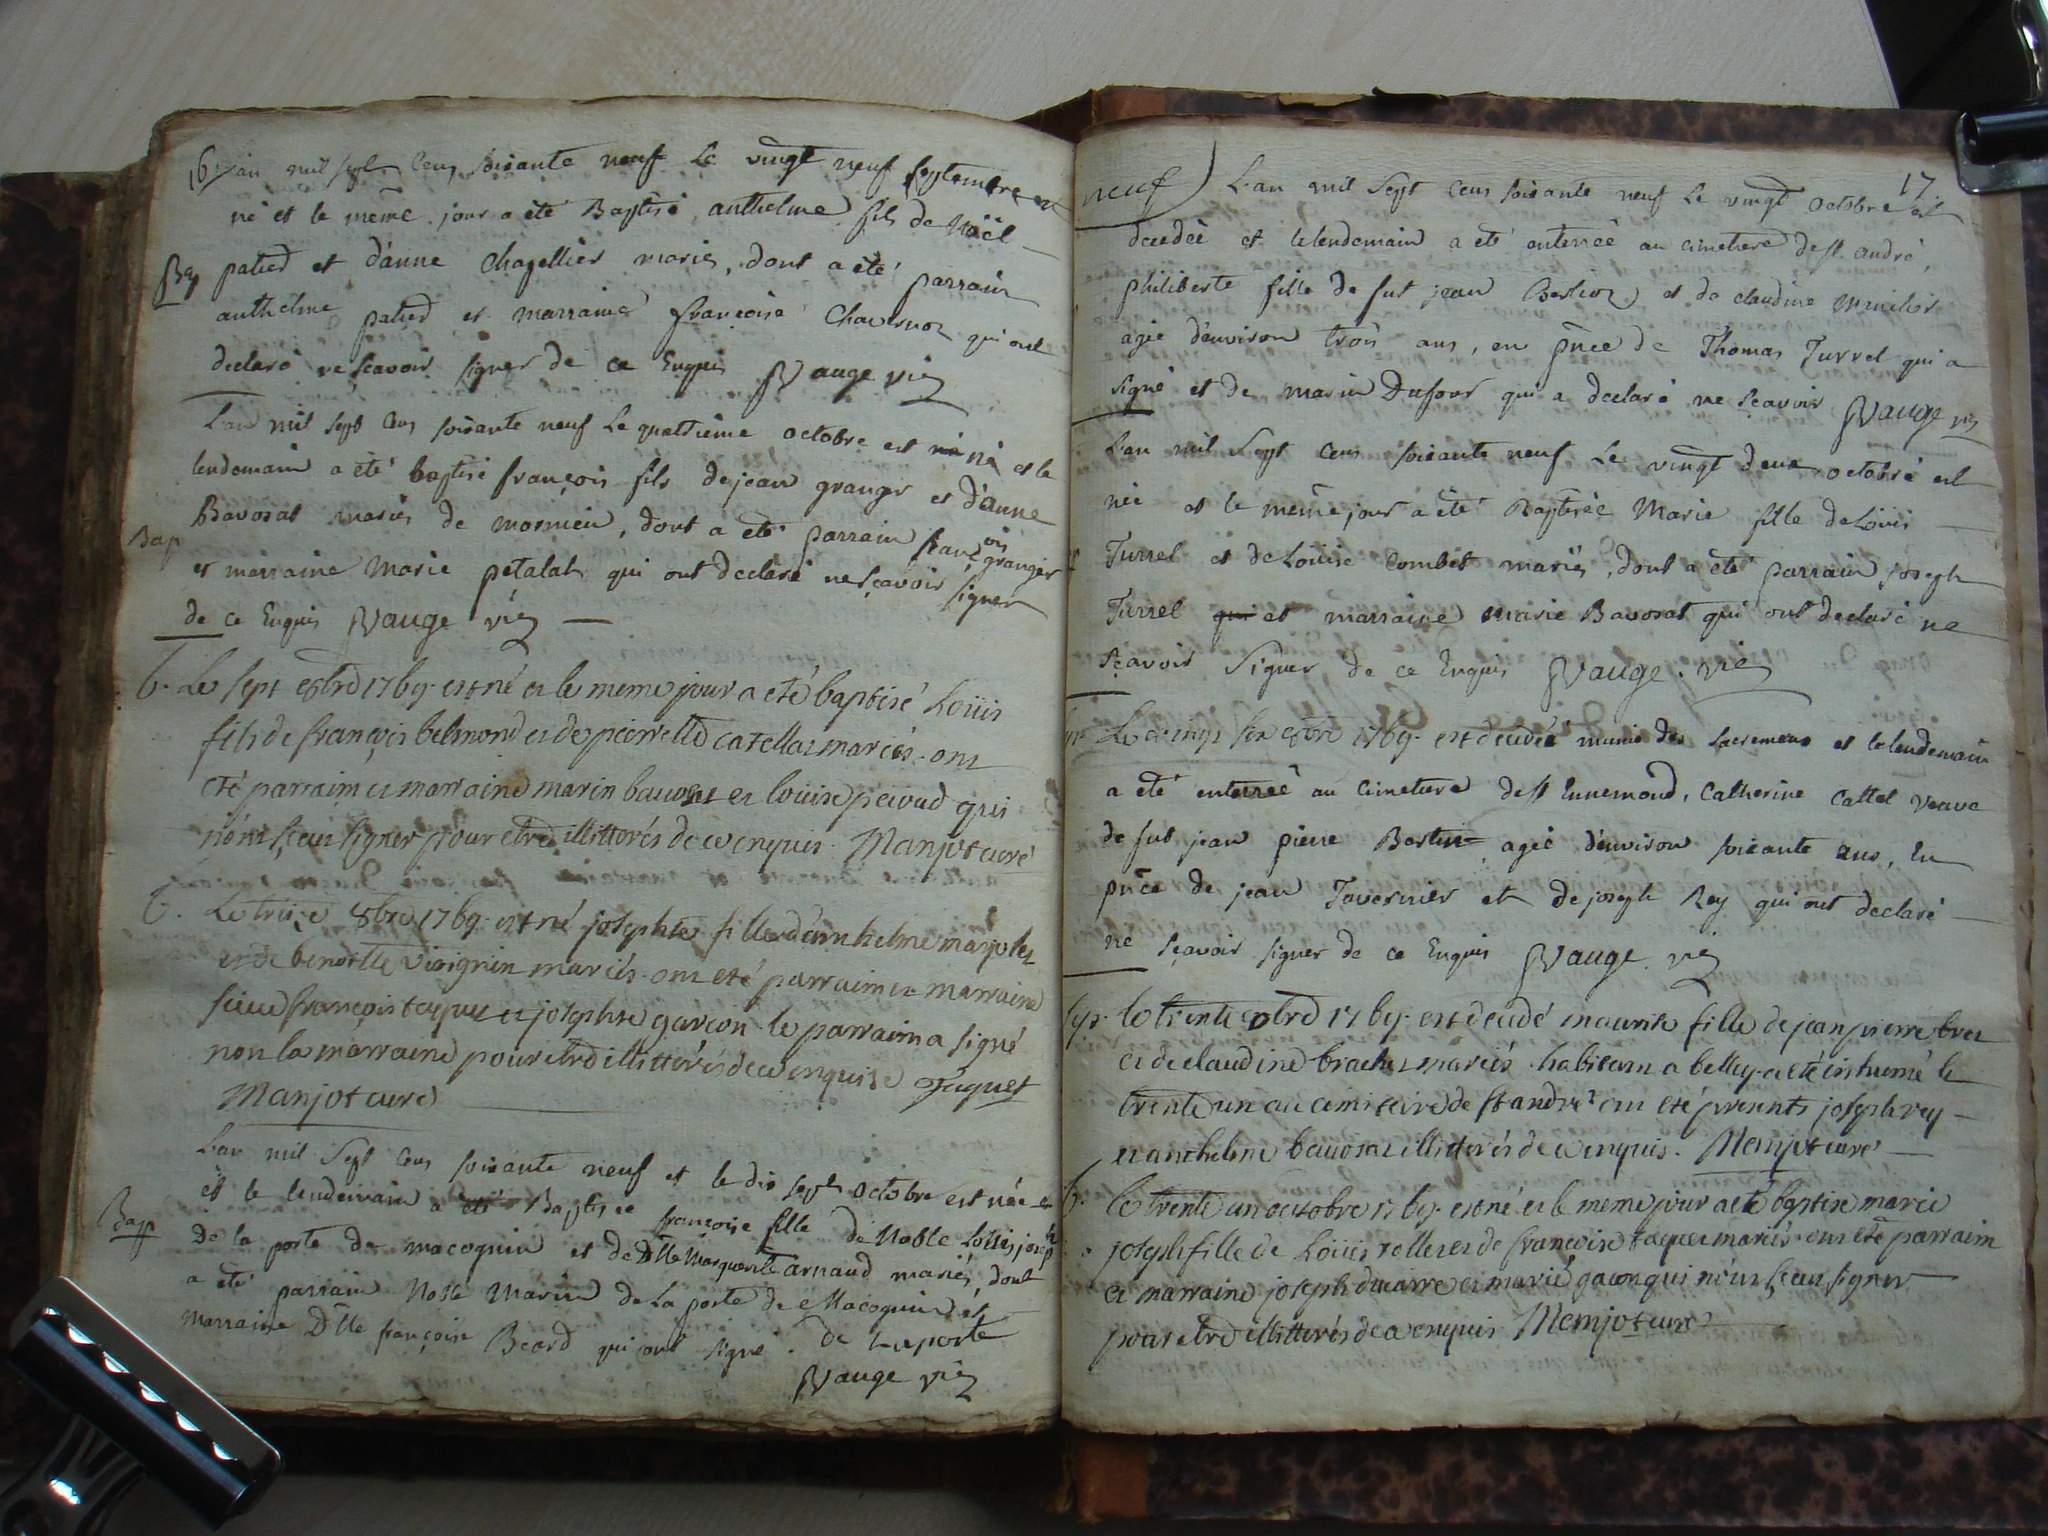 16 L'an mil sept cens soixante neuf Le vingt neuf septembre est
né et le même jour a été Baptisé anthelme fils de Noël
Bap patied et d'anne Chapellier mariés, dont a été parrain
anthelme patied et marraine françoise Chavernoz qui ont
declaré ne sçavoir signer de ce Enquis Vauge vic
L'an mil sept cens soixante neuf Le quatrieme octobre est né et le
lendemain a été baptisé françois fils de jean granger et d'anne
Bavosat mariés de mormieu, dont a été parrain françois granger
Bap et marraine Marie petalat qui ont declaré ne sçavoir signer
de ce Enquis Vauge vic
b. Le sept 8bre 1769. est né et le meme jour a eté baptisé Loüis
fils de françois belmond et de pierrette catellaz mariés. ont
eté parrain et marraine marin bavosat et loüise peroud qui
n'ont sceu signer pour etre illitterés de ce enquis. Manjot curé
b. Le treize 8bre 1769. est né josephte fille d'anthelme marjolet
et de benoitte virignin mariés. ont eté parrain et marraine
sieur françois taquet et josephte garçon. le parrain a signé
non la marraine pour etre illitterés de ce enquise Taquet
Manjot curé
L'an mil Sept cens soixante neuf et le dix sept octobre est née
et le lendemain a été Baptisée françoise fille de Noble Loüis joseph
Bap de la porte de macognin et de Dlle Marguerite arnaud mariés, dont
a été parrain Noble Marin de La porte de Macognin et
marraine Dlle françoise Béard qui ont signé. De Laporte
Vauge vic
17
neuf) L'an mil Sept cens soixante neuf Le vingt octobre est
decedée et le lendemain a été enterrée au cimetiere de st. andré,
philiberte fille de fut jean Berlioz et de claudine
agée d'environ trois ans, en pnce de Thomas Turrel qui a
signé et de marin Dufour qui a declaré ne sçavoir Vauge vic
L'an mil Sept cens soixante neuf Le vingt deux octobre est
née et le même jour a été Baptisée Marie fille de Loüis
Turrel et de Loüise Combet mariés, dont a été parrain joseph
Turrel qui et marraine Marie Bavosat qui ont declaré ne
sçavoir Signer de ce Enquis Vauge. vic
Le vingt six 8bre 1769. est decedée munie des sacremens et le lendemain
a été enterrée au cimetiere de st Ennemond, Catherine Cattel veuve
de fut jean pierre Bertin agée d'environ soixante ans, En
pnce de jean Tavernier et de joseph Rey qui ont declaré
ne sçavoir signer de ce Enquis Vauge. vic
sep. le trente 8bre 1769. est decedé maurise fille de jean pierre bret
et de claudine brachet mariés habitant a belley. a eté inhumé le
trente un au cimitaire de st andré ont eté presents joseph rey
et anthelme bavosat illitterés de ce enquis. Manjot curé
b. le trente un octobre 1769. est né et le meme jour a eté baptise marie
joseph fille de Loüis rollet et de françoise taquet mariés. ont eté parrain
et marraine joseph ducarre et marie gacon qui n'ont sceu signer
pour etre illitterés de ce enquis Manjot curé